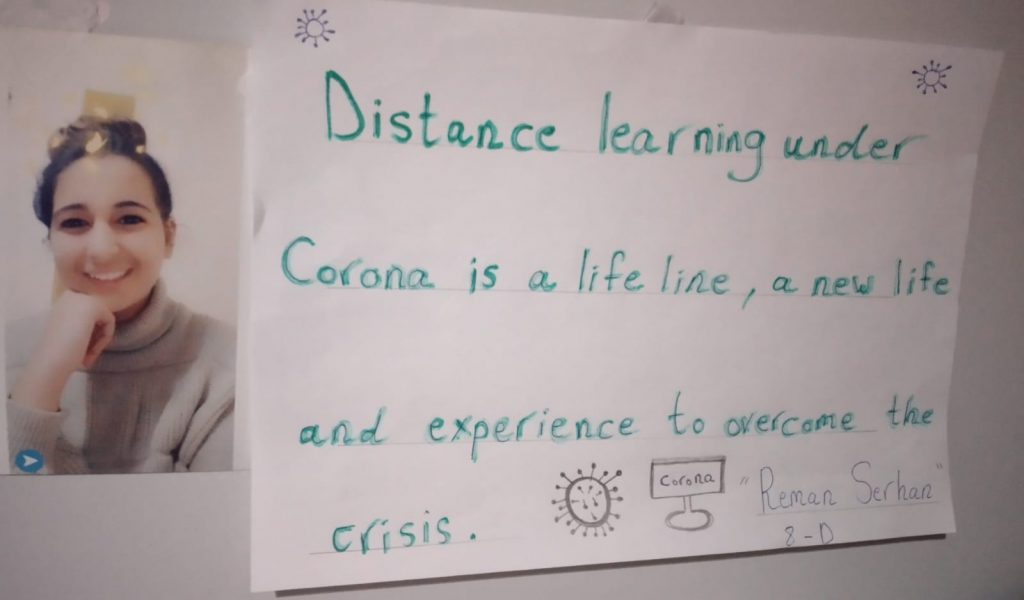 Distance learning under
Corona is a life line, a new life
and experience to overcome the
crisis.
Corona
"Reman Serhan"
8-D